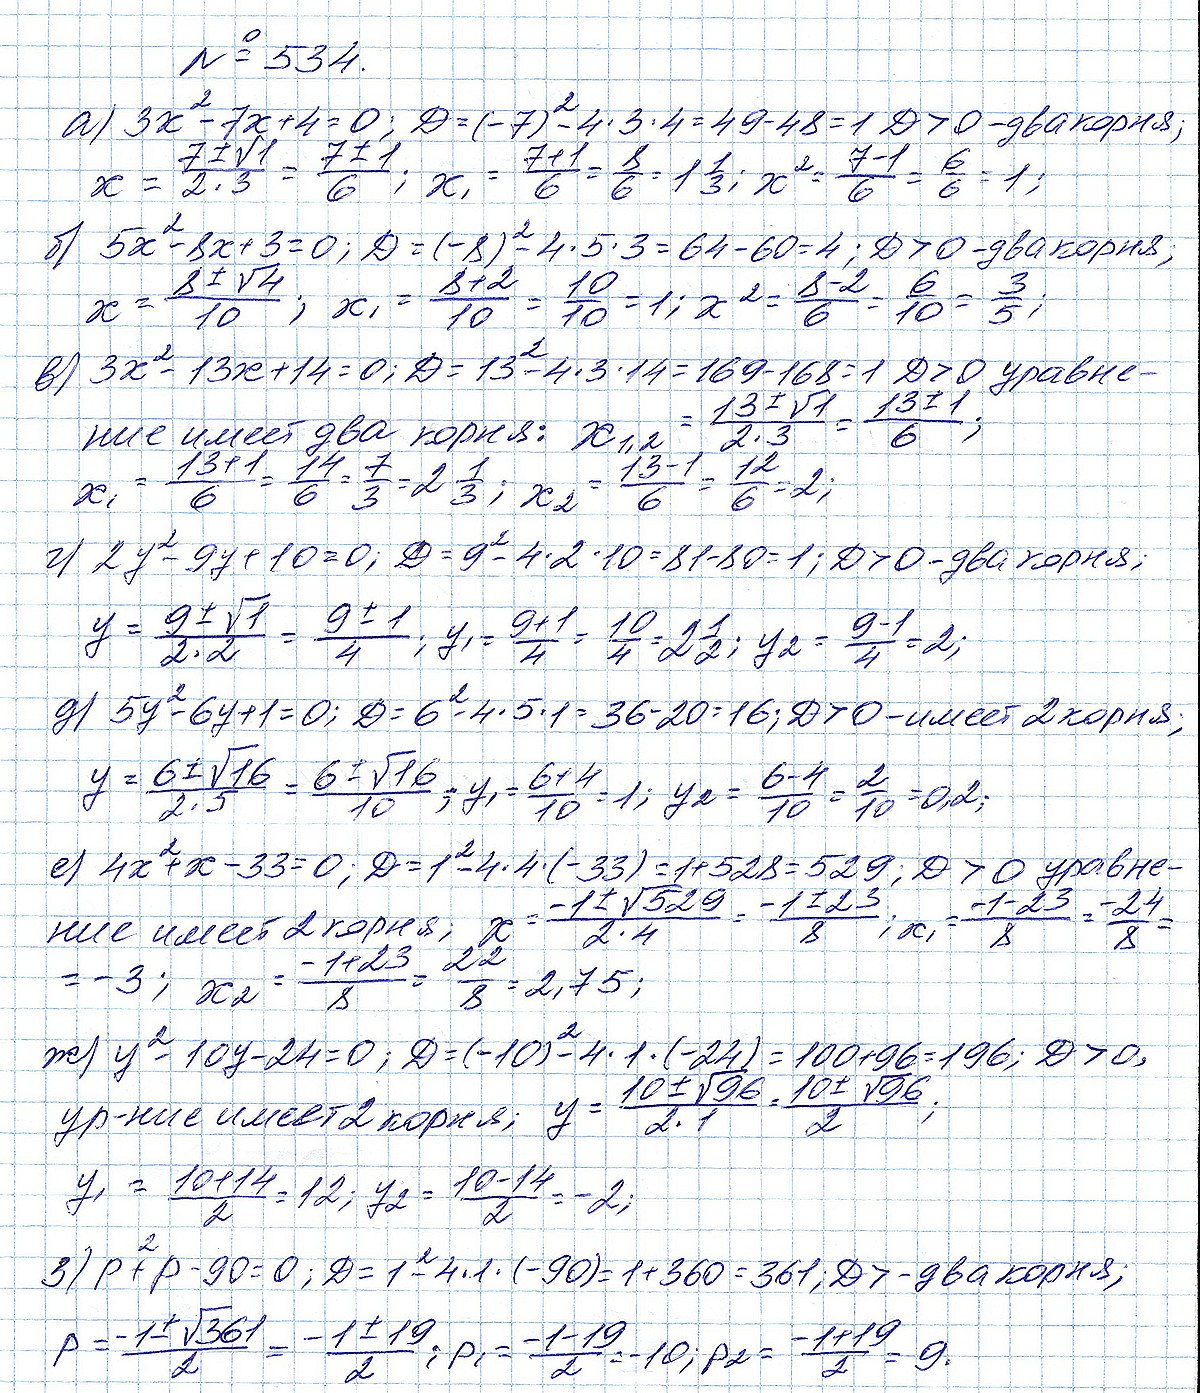 № 534.
а) 3x² - 7x + 4 = 0; D = (-7)² - 4·3·4 = 49 - 48 = 1 D > 0 - два корня;
x = (7 ± √1)/(2·3) = (7 ± 1)/6; x₁ = (7+1)/6 = 8/6 = 1 1/3; x² = (7-1)/6 = 6/6 = 1;
б) 5x² - 8x + 3 = 0; D = (-8)² - 4·5·3 = 64 - 60 = 4; D > 0 - два корня;
x = (8 ± √4)/10; x₁ = (8+2)/10 = 10/10 = 1; x² = (8-2)/6 = 6/10 = 3/5;
в) 3x² - 13x + 14 = 0; D = 13² - 4·3·14 = 169 - 168 = 1 D > 0 уравне-
ние имеет два корня: x₁,₂ = (13 ± √1)/(2·3) = (13 ± 1)/6;
x₁ = (13+1)/6 = 14/6 = 7/3 = 2 1/3; x₂ = (13-1)/6 = 12/6 = 2;
г) 2y² - 9y + 10 = 0; D = 9² - 4·2·10 = 81 - 80 = 1; D > 0 - два корня;
y = (9 ± √1)/(2·2) = (9 ± 1)/4; y₁ = (9+1)/4 = 10/4 = 2 1/2; y₂ = (9-1)/4 = 2;
д) 5y² - 6y + 1 = 0; D = 6² - 4·5·1 = 36 - 20 = 16; D > 0 - имеет 2 корня;
y = (6 ± √16)/(2·5) = (6 ± √16)/10; y₁ = (6+4)/10 = 1; y₂ = (6-4)/10 = 2/10 = 0,2;
е) 4x² + x - 33 = 0; D = 1² - 4·4·(-33) = 1 + 528 = 529; D > 0 уравне-
ние имеет 2 корня; x = (-1 ± √529)/(2·4) = (-1 ± 23)/8; x₁ = (-1-23)/8 = -24/8 =
= -3; x₂ = (-1+23)/8 = 22/8 = 2,75;
ж) y² - 10y - 24 = 0; D = (-10)² - 4·1·(-24) = 100 + 96 = 196; D > 0,
ур-ние имеет 2 корня; y = (10 ± √96)/(2·1) = (10 ± √96)/2;
y₁ = (10+14)/2 = 12; y₂ = (10-14)/2 = -2;
з) p² + p - 90 = 0; D = 1² - 4·1·(-90) = 1 + 360 = 361; D > - два корня;
p = (-1 ± √361)/2 = (-1 ± 19)/2; p₁ = (-1-19)/2 = -10; p₂ = (-1+19)/2 = 9.